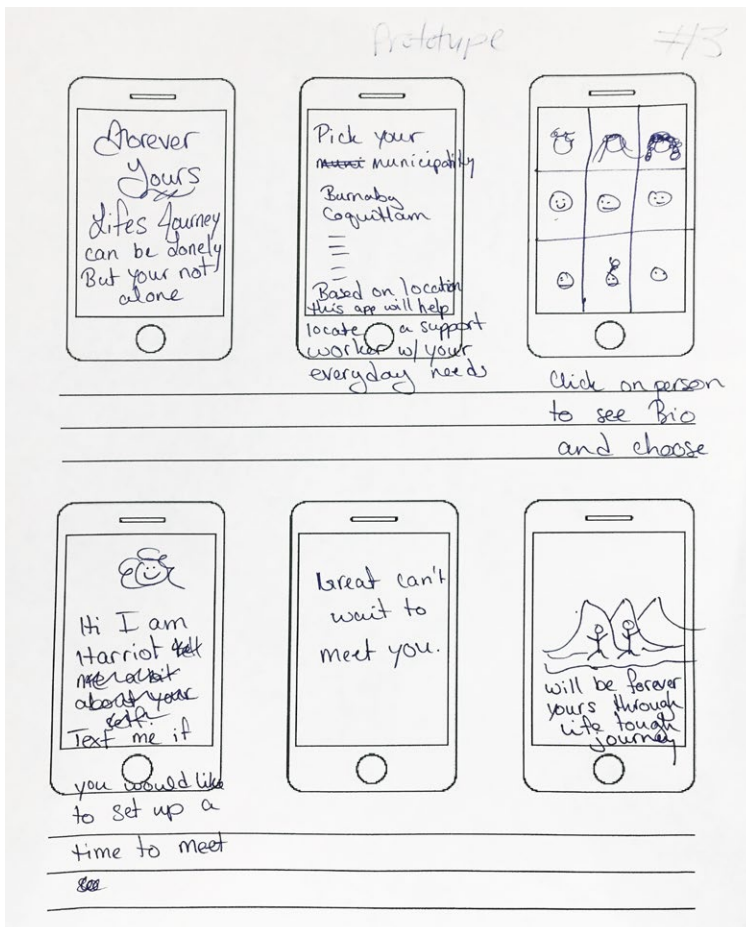 Prototype #3
Forever
Yours
Lifes Journey
can be lonely
But your not
alone
Pick your
municipality
Burnaby
Coquitlam
Based on location
this app will help
locate a support
worker w/ your
everyday needs
Click on person
to see Bio
and choose
Hi I am
Harriot tell
me a bit
about your
self.
Text me if
you would like
to set up a
time to meet
Great can't
wait to
meet you.
will be forever
yours through
life tough
journey